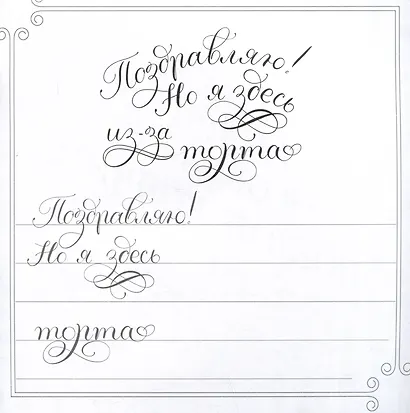 Поздравляю!
Но я здесь
из-за торта
Поздравляю!
Но я здесь
торта